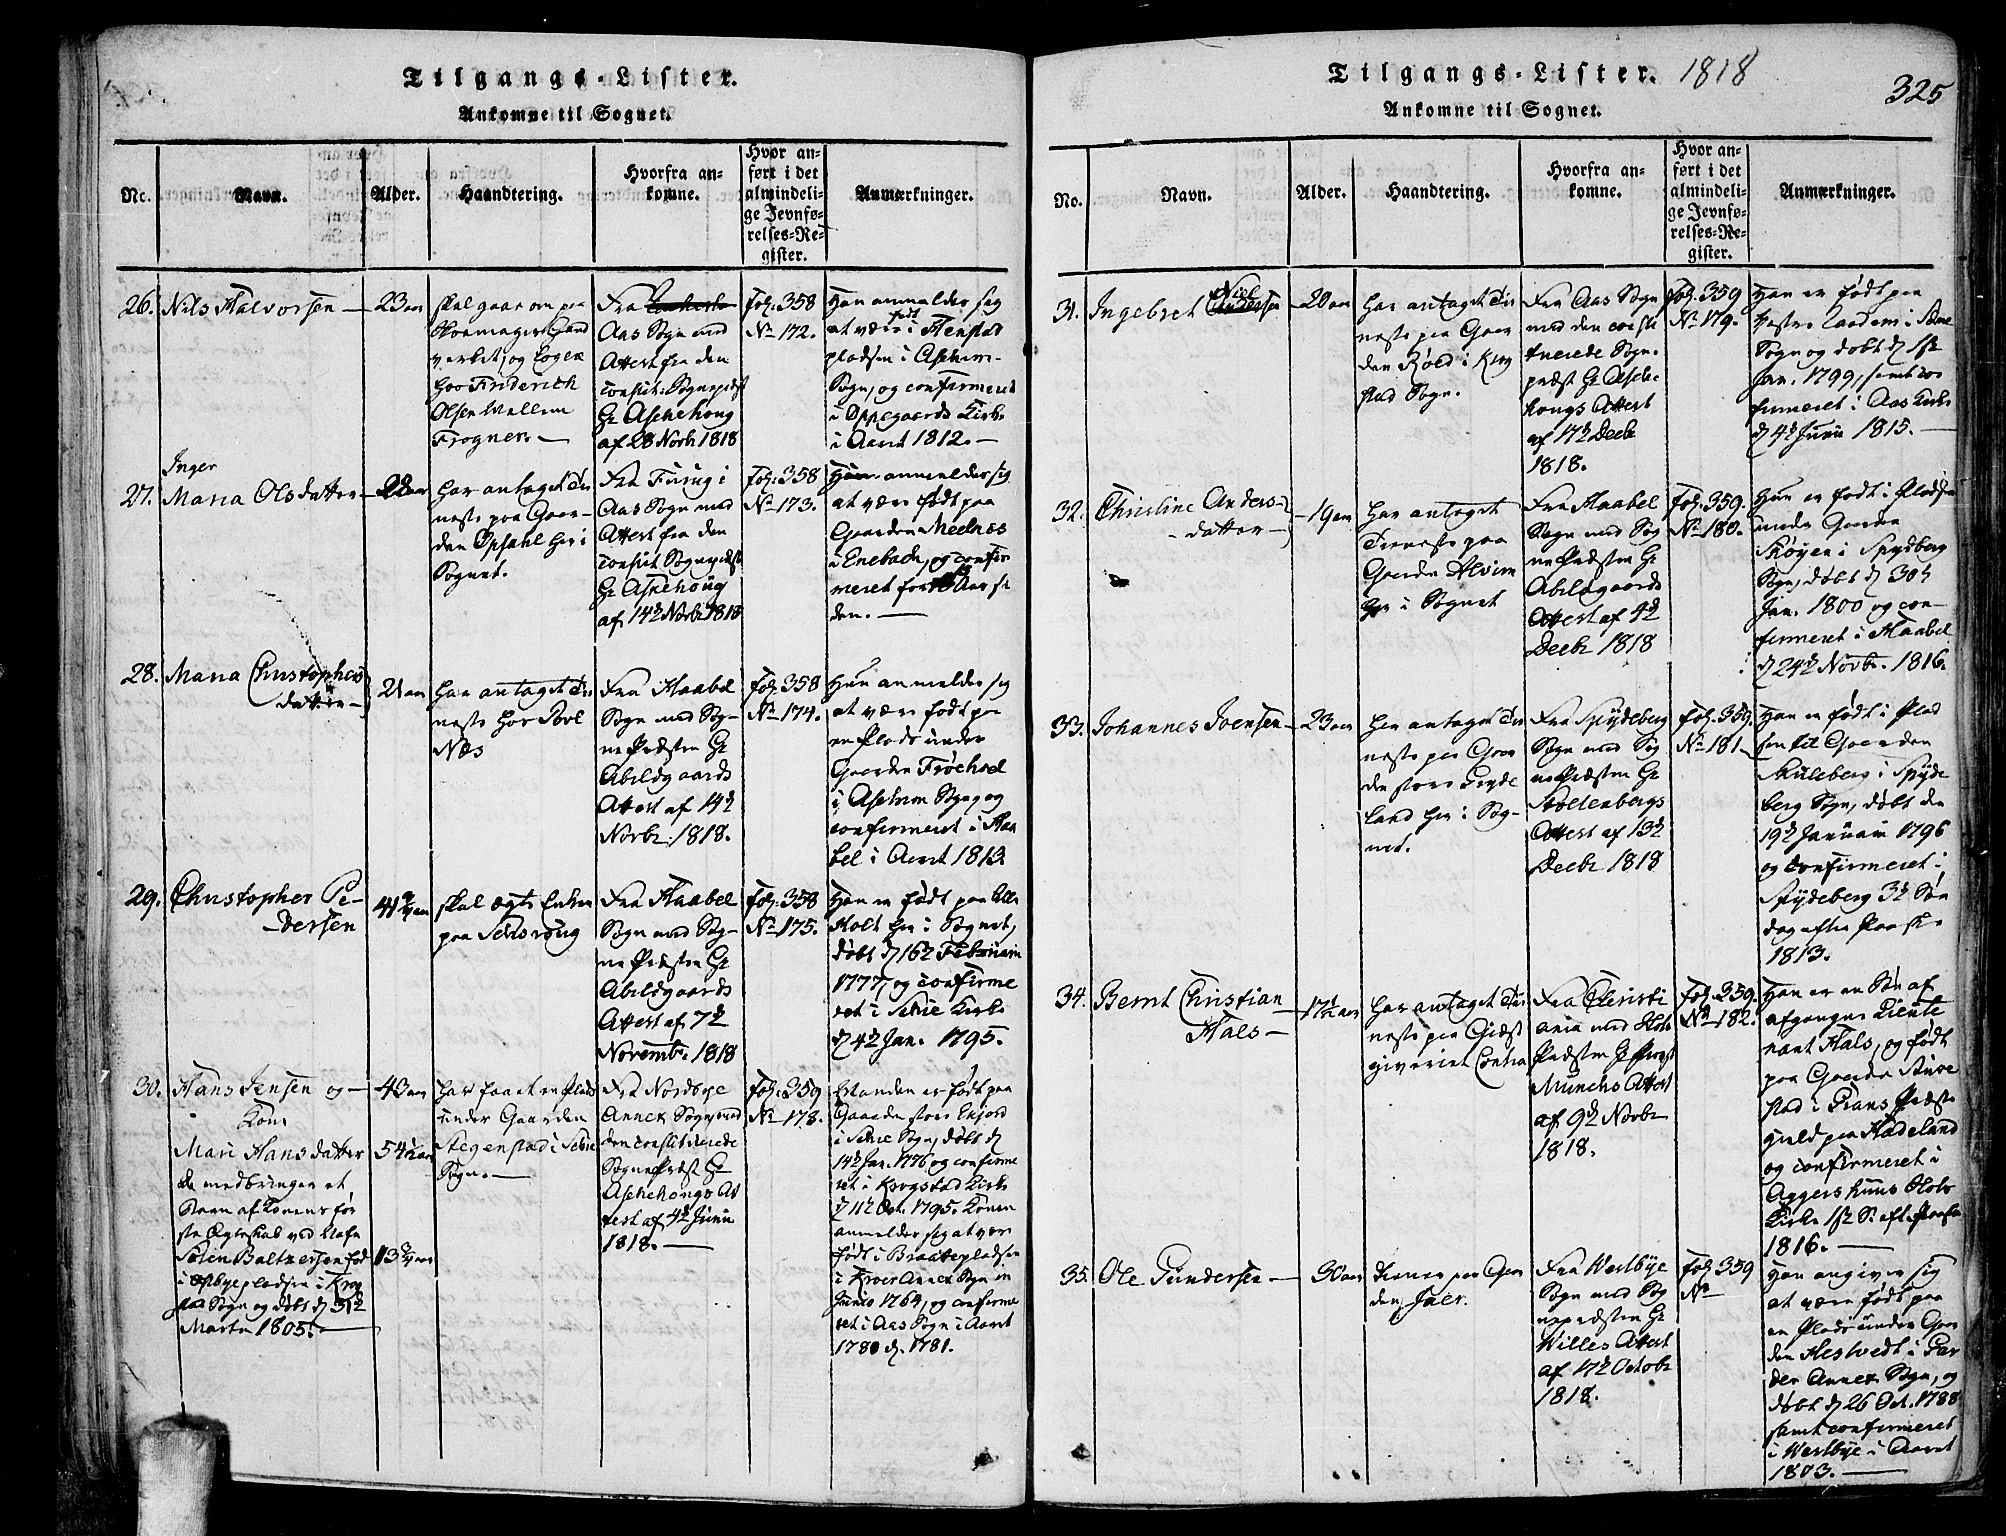 Tilgangs-Lister.
Ankomne til Sognet.
Nc.
Navn.
Alder.
Haandtering.
Hvorfra an-
komne.
Hvor an-
ført i det
almindeli-
ge Jevnfø-
relses-Re-
gister.
Anmærkninger.
26.
Nils Halvorsen
23 aar
skal gaae om paa
Skoemager Haand
verket, og logere
hos Friderich
Olsen Mellem
Frogner.
Fra
Aas Sogn med
Attest fra den
constit. Sognepræst
Hr Aschehoug
af 28 Novbr 1818
Fol. 358
No 172.
Han anmelder sig
at være født i Henstad
pladsen i Aschims
Sogn, og confirmeret
i Oppegaards Kirke
i Aaret 1812.
27.
Inger
Maria Olsdatter
22 aar
har antaget Tie
neste paa Gaar-
den Opsahl her i
Sognet.
Fra Furug i
Aas Sogn med
Attest fra den
constit Sognepræst
Hr Aschehoug
af 14de Novbr 1818
Fol. 358
No 173.
Hun anmelder sig
at være født paa
Gaarden Meelnes
i Enebach, og confir
meret for Aar si
den.
28.
Maria Christophers
datter
21 aar
har antaget Tie
neste hos Povl
Næs
Fra Haabøl
Sogn med Sog-
ne Præsten Hr
Abildgaards
Attest af 14de
Novbr. 1818.
Fol. 358
No 174.
Hun anmelder sig
at være født paa
en Plads under
Gaarden Frøshoel
i Aschim Sogn og
confirmeret i Haa
bel i Aaret 1813
29.
Christopher Pe-
dersen
41 3/4 aar
skal ægte Enken
paa Sensroug
Fra Haabel
Sogn med Sog-
ne Præsten Hr
Abildgaards
Attest af 7de
Novembr. 1818
Fol. 358
No 175.
Han er født paa
Holt her i Sognet,
døbt d 16de Februari
1777, og confirme
ret i Schie Kirke
d 4de Jan. 1795.
30.
Hans Jensen og
Kone
Mari Hansdatter
de medbringer et
Barn af Konens før
ste Ægteskab ved Nafn
Søren Baltzersen født
i byepladsen i Krog
stad Sogn og døbt d 31te
Martii 1805.
43 aar
54 1/2 aar
13 3/4 aar
har faaet en Plads
under Gaarden
Stegenstad i Schie
Sogn.
Fra Nordbye
Annex Sogn med
den constituerede
Sogne Præst Hr
Aschehougs At
test af 4de Junii
1818.
Fol. 359
No 178.
Manden er født paa
Gaarden store Enjord
i Schie Sogn, døbt d
14de Jan. 1776 og confirme
ret i Krogstad Kirke
d 11te Oct. 1795. Konen
anmelder sig at være
født i Braatepladsen
i Kroer Annex Sogn in
Junio 1764, og confirme
ret i Aas Sogn i Aaret
1780 d. 1781.
Tilgangs-Lister. 1818
325
Ankomne til Sognet.
No.
Navn.
Alder.
Haandtering.
Hvorfra an-
komne.
Hvor an-
ført i det
almindeli-
ge Jevnfø-
relses-Re-
gister.
Anmærkninger.
31.
Ingebret
20 aar
har antaget Tie
neste paa Gaar
den Røed i Krog
stad Sogn.
Fra Aas Sogn
med den consti
tuerede Sogne
præst Hr Asche
hougs Attest
af 17de Decbr
1818.
Fol. 359
No 179.
Han er født paa
i Aas
Sogn og døbt d 1ste
Jan. 1799, samt con
firmeret i Aas Kirke
d 4de Junii 1815.
32.
Christine Anders-
datter
19 aar
har antaget
Tieneste paa
Gaarden Alvim
her i Sognet
Fra Haabel
Sogn med Sog
ne Præsten Hr
Abildgaards
Attest af 4de
Decbr 1818
Fol. 359.
No 180.
Hun er født i Pladsen
under Gaarden
Skøyen i Spydberg
Sogn, døbt d 30te
Jan. 1800 og con-
firmeret i Haabel
d 24de Novbr. 1816.
33.
Johannes Joensen
23 aar
har antaget Tie
neste paa Gaar
den store Gryde
land her i Sog-
net.
Fra Spydeberg
Sogn med Sog
ne Præsten Hr
Stoltenbergs
Attest af 13de
Decbr 1818
Fol. 359.
No 181
Han er født i Plad
sen til Gaarden
Skuleberg i Spyde
berg Sogn, døbt den
19de Januarii 1796
og confirmeret i
Spydeberg 3de Søn
dag efter Paaske
1813.
34.
Bernt Christian
Hals
17 1/2 aar
har antaget Tie
neste paa Giæst
giveriet Contra
Fra Christi
ania med Slots
Præsten Hr Provst
Munchs Attest
af 9de Novbr
1818.
Fol. 359.
No 182.
Han er en Søn af
afgangne Lieute
nant Hals, og født
paa Gaarden
stad i Grans Præste
gield paa Hadeland
og confirmeret i
Aggershuus Slots
Kirke 1ste S. eft. Paaske
1816.
35.
Ole Gundersen
30 aar
tiener paa Gaar
den Jaer.
Fra Westbye
Sogn med Sog
nepræsten Hr
Willes Attest
af 17de Octobr
1818.
Fol. 359
No
Han angiver sig
at være født paa
en Plads under Gaar
den Hestvedt i Gar
der Annex Sogn, og
døbt d 26 Oct. 1788
samt confirmeret
i Westbye i Aaret
1803.